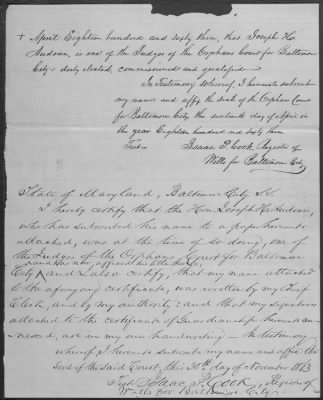 + April Eighteen hundred and sixty three, that Joseph H.
Audoun, is one of the Judges of the Orphans Court for Baltimore
City duly elected, commissioned and qualified
In Testimony Whereof, I hereunto subscribe
my name and affix the seal of the Orphans Court
for Baltimore City, the sixteenth day of April in
the year Eighteen hundred and sixty three
Test Isaac P. Cook, Register of
Wills for Baltimore City,
State of Maryland, Baltimore City Sct.
I hereby certify that the Hon. Joseph H. Audoun,
who has subscribed his name to a paper hereunto
attached, was at the time of so doing, one of
the Judges of the Orphans' Court for Baltimore
City and I also certify, that my name attached
to the aforegoing certificate, was written by my Chief
Clerk, and by my authority: and that my signature
attached to the certificate of Guardianship hereunto an-
nexed, are in my own handwriting — In testimony
whereof, I hereunto subscribe my name and affix the
seal of the said Court, this 30th day of November 1863
Test Isaac P. Cook, Register of
Wills for Baltimore City.